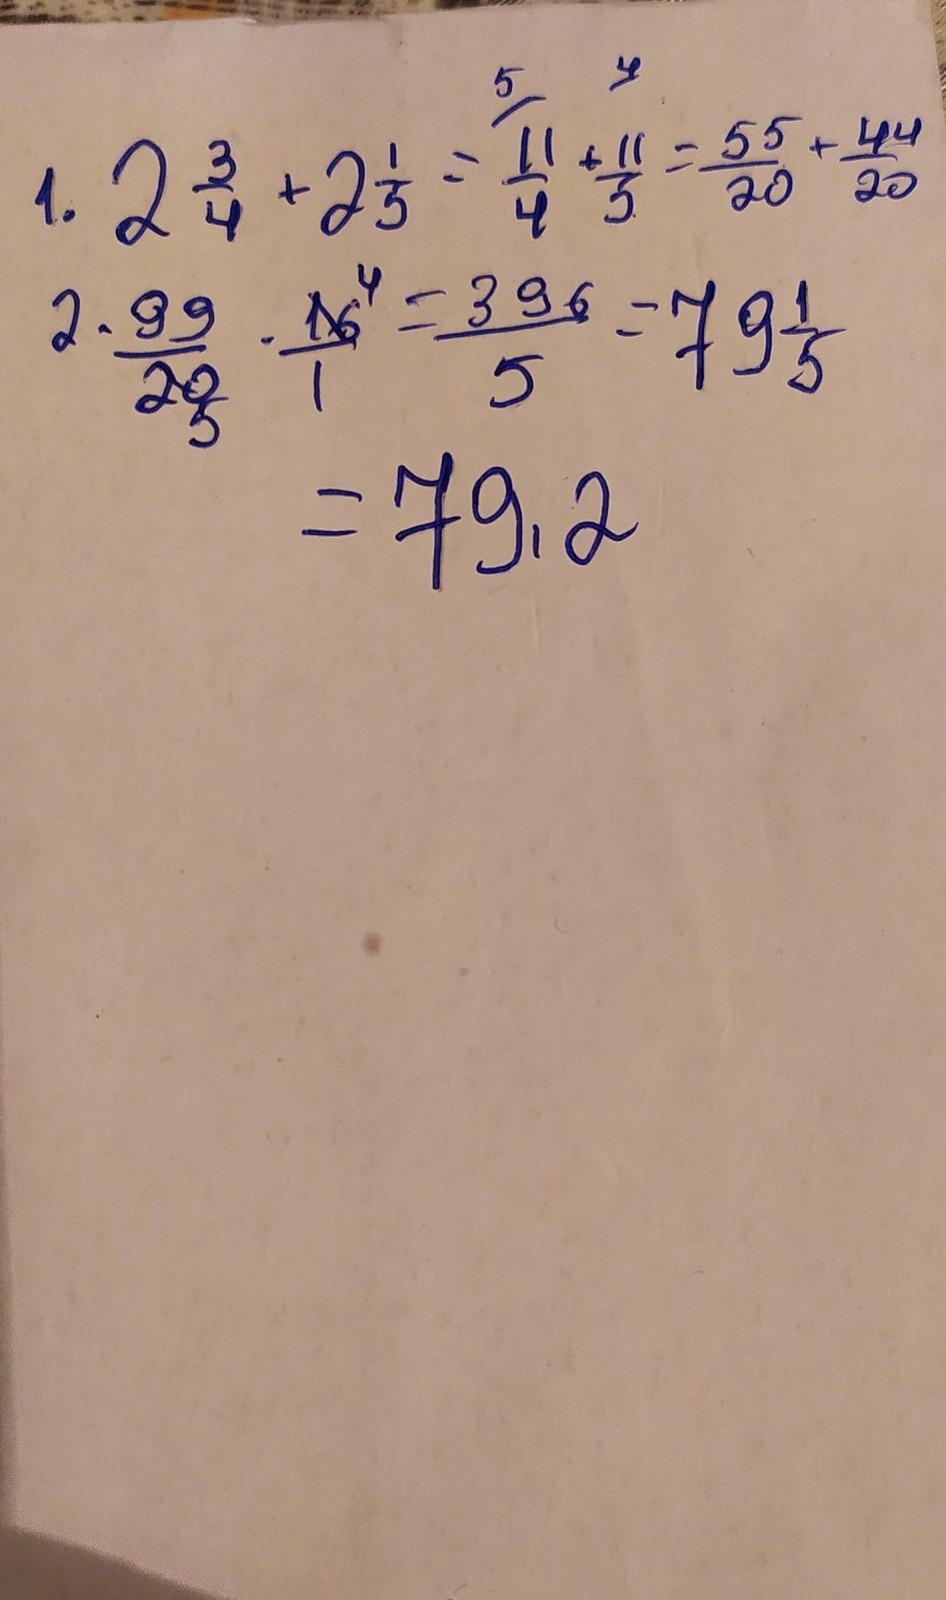 1. 2 3/4 + 2 1/5 = 11/4 (5) + 11/5 (4) = 55/20 + 44/20
2. 99/20 (5) · 16/1 (4) = 396/5 = 79 1/5
= 79,2